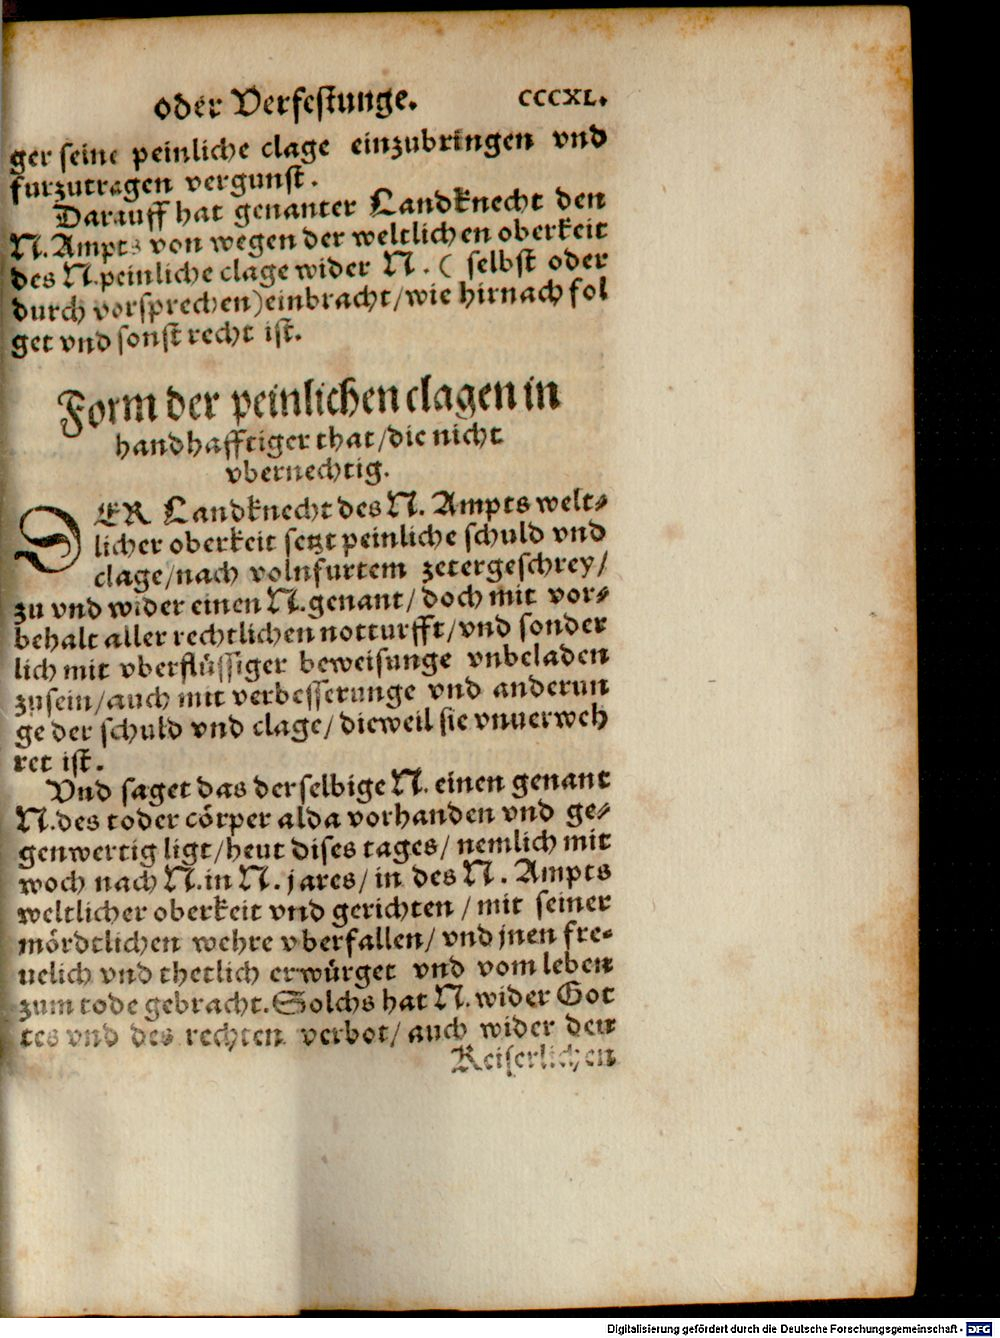 oder Verfestunge. CCCXL.
ger seine peinliche clage einzubringen vnd
furzutragen vergunst.
Darauff hat genanter Landknecht den
N. Ampts von wegen der weltlichen oberkeit
des N. peinliche clage wider N. ( selbst oder
durch vorsprechen) einbracht/ wie hirnach fol
get vnd sonst recht ist.
Form der peinlichen clagen in
handhafftiger that/ die nicht
vbernechtig.
DER Landknecht des N. Ampts welt-
licher oberkeit setzt peinliche schuld vnd
clage/ nach volnfurtem zetergeschrey/
zu vnd wider einen N. genant/ doch mit vor-
behalt aller rechtlichen notturfft/ vnd sonder
lich mit vberflüssiger beweisunge vnbeladen
zusein/ auch mit verbesserunge vnd anderun
ge der schuld vnd clage/ dieweil sie vnuerweh
ret ist.
Vnd saget das derselbige N. einen genant
N. des toder cörper alda vorhanden vnd ge-
genwertig ligt/ heut dises tages/ nemlich mit
woch nach N. in N. jares/ in des N. Ampts
weltlicher oberkeit vnd gerichten / mit seiner
mördtlichen wehre vberfallen/ vnd jnen fre-
uelich vnd thetlich erwürget vnd vom leben
zum tode gebracht. Solchs hat N. wider Got
tes vnd des rechten verbot/ auch wider den
Keiserlichen
Digitalisierung gefördert durch die Deutsche Forschungsgemeinschaft - DFG